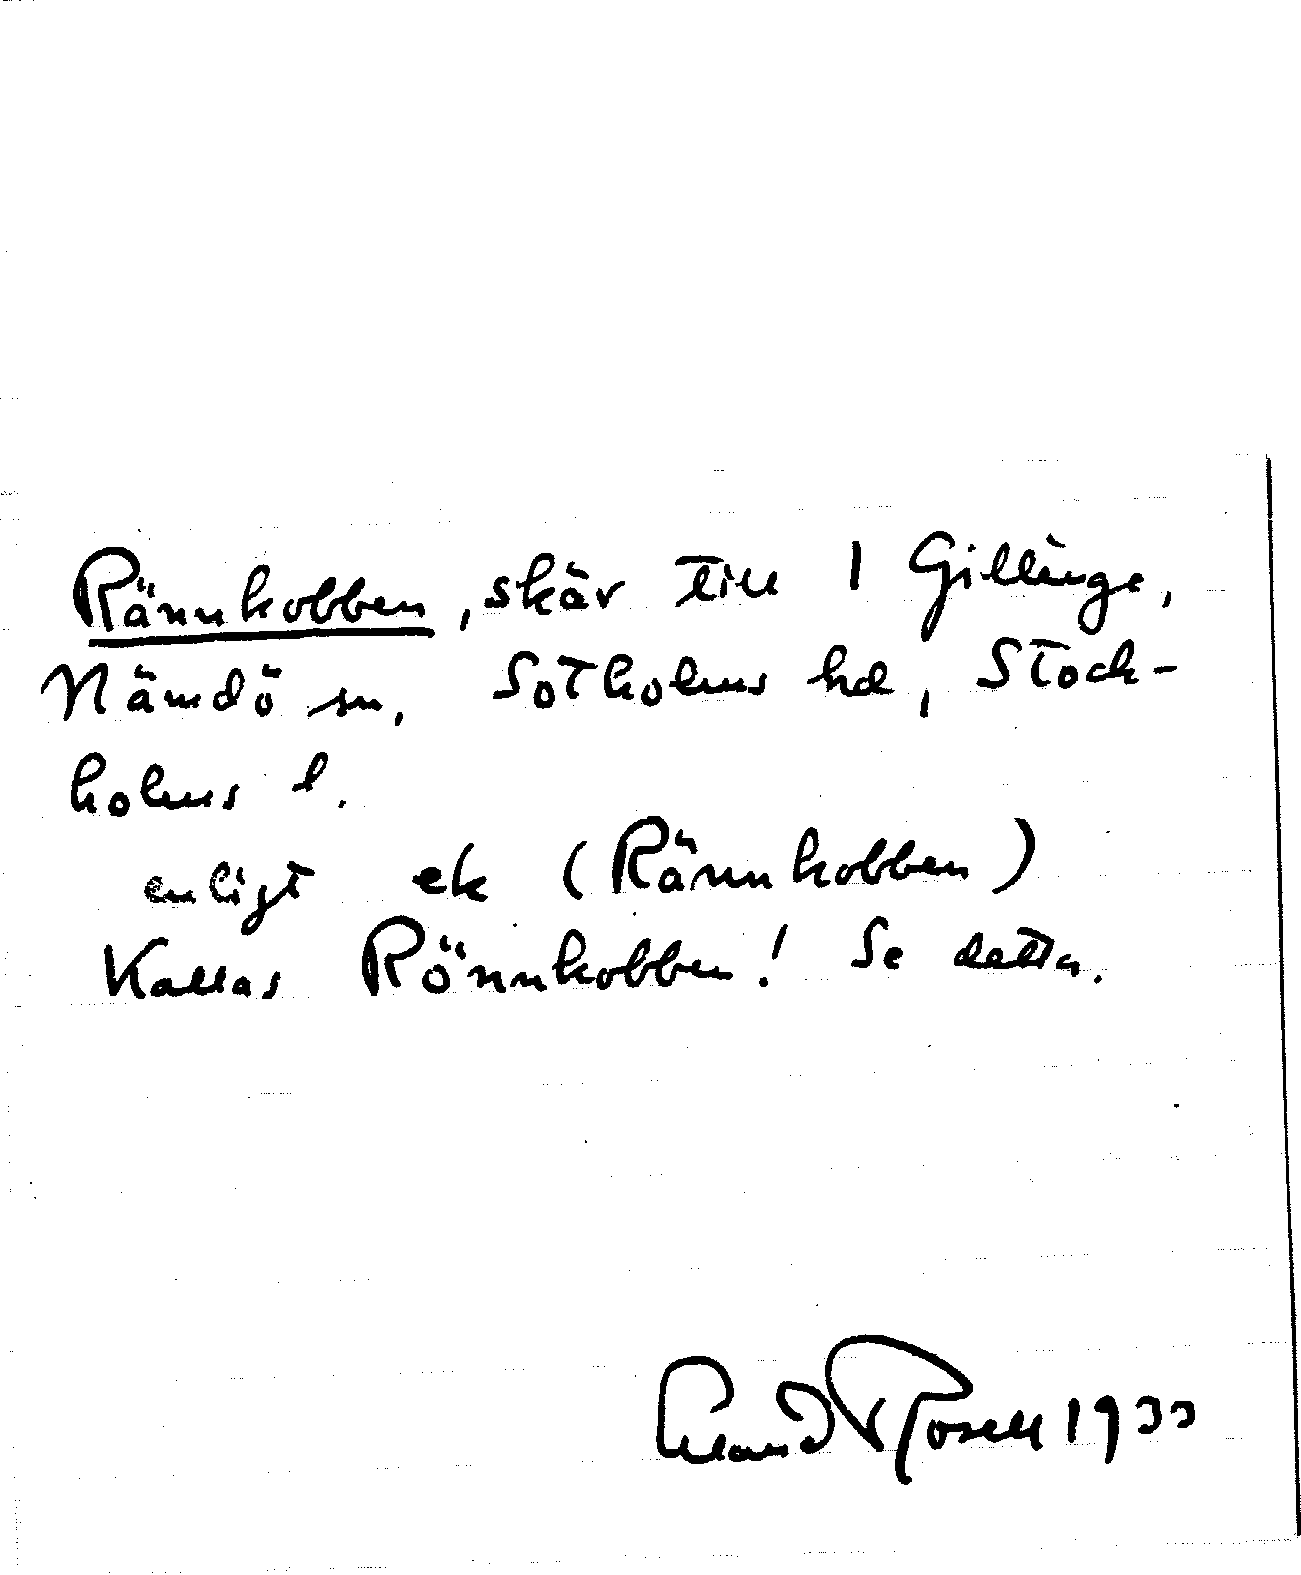 Rännkobben, skär till 1 Gillinge,
Nämdö sn, Sotholms hd, Stock-
holms l.
enligt ek (Rännkobben)
Kallas Rönnkobben! Se detta.
Erland Rosell 1933